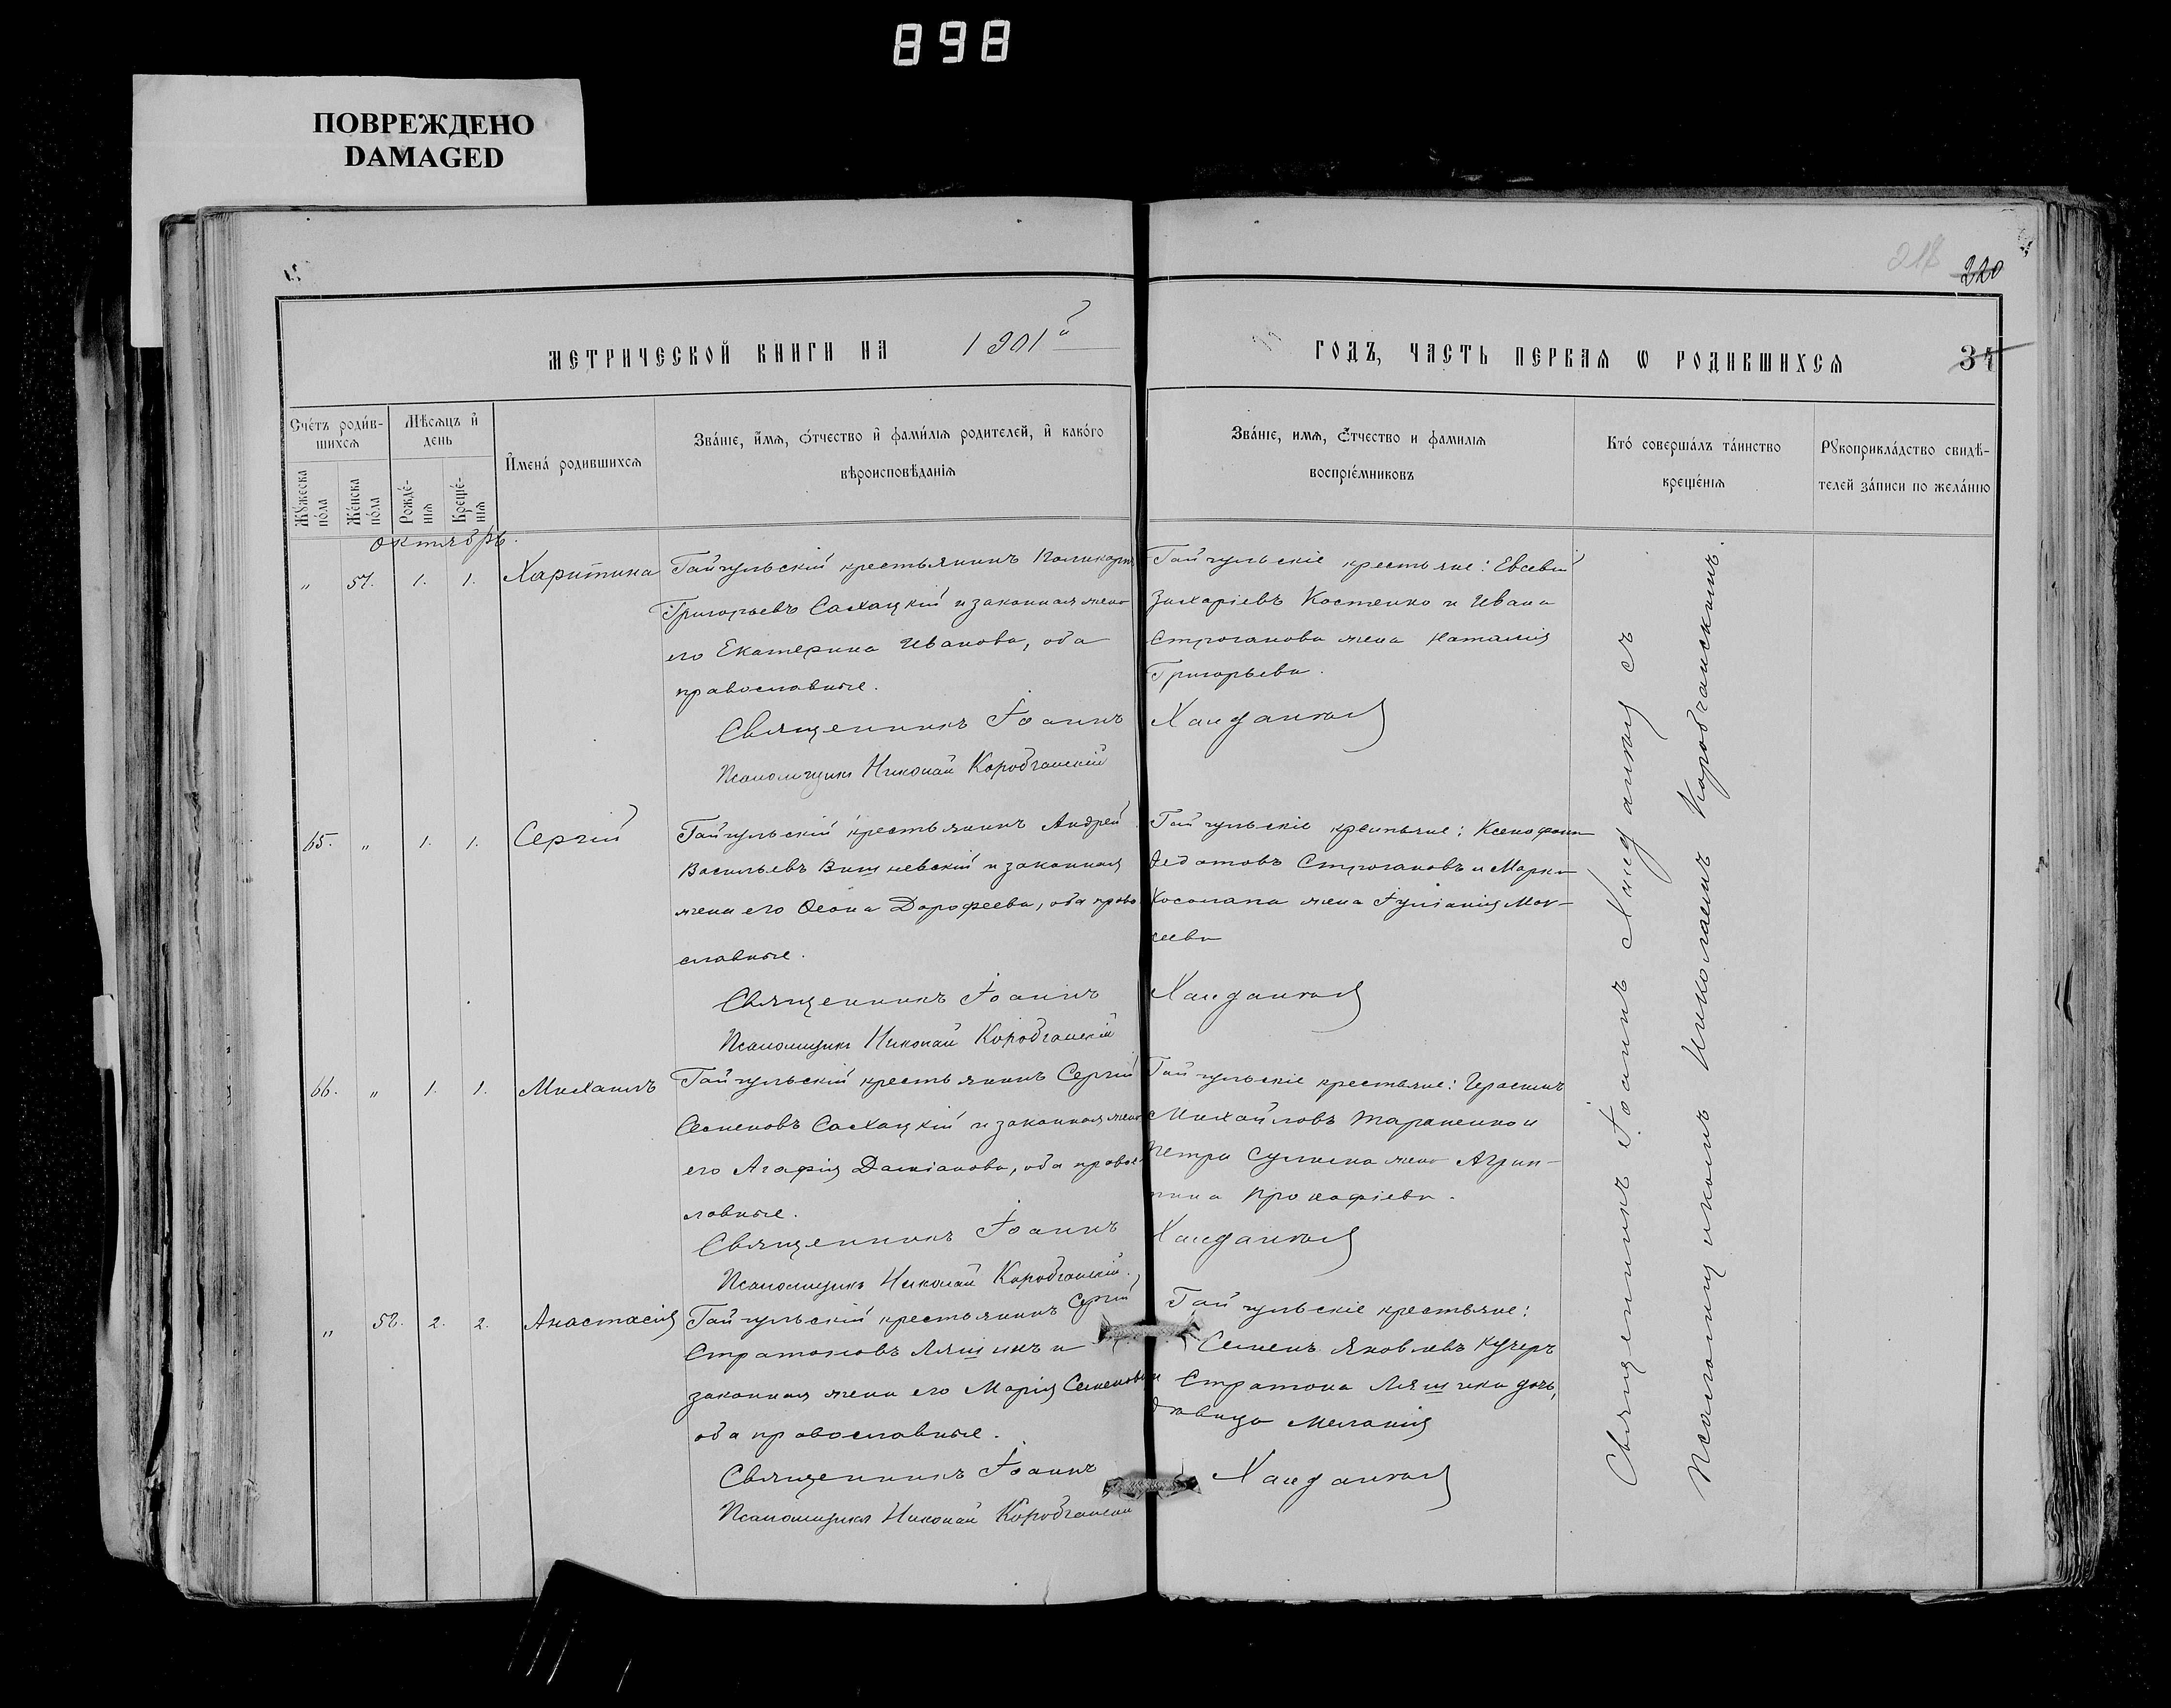 898
ПОВРЕЖДЕНО
DAMAGED
220
МЕТРИЧЕСКОЙ КНИГИ НА 1901й
ГОДЪ, ЧАСТЬ ПЕРВАЯ Ѡ РОДИВШИХСЯ
Счетъ родив-
шихся
Мѣсяцъ и
день
Имена родившихся
Званіе, имя, отчество и фамилія родителей, и какого
вѣроисповѣданія
Званіе, имя, отчество и фамилія
воспріемниковъ
Кто совершалъ таинство
крещенія
Рукоприкладство свидѣ-
телей записи по желанію
Мужеска
пола
Женска
пола
Рожде-
нія
Креще-
нія
октябрь.
" 57. 1. 1. Харитина
Гайчульскій крестьянинъ Поликарпъ
Григорьевъ Сахацкій и законная жена
его Екатерина Иванова, оба
православные.
Священникъ Іоаннъ
Псаломщикъ Николай Коробчанскій
Гайчульскіе крестьяне: Евсевій
Захаріевъ Костенко и Ивана
Строганова жена Наталія
Григорьева.
65. " 1. 1. Сергій
Гайчульскій крестьянинъ Андрей
Васильевъ Вишневскій и законная
жена его Дорофеева, оба право
славные.
Священникъ Іоаннъ
Псаломщикъ Николай Коробчанскій
Гайчульскіе крестьяне: Ксенофонт
Федотовъ Строгановъ и Марка
жена Іуліанія Мои-
сеева
66. " 1. 1. Михаилъ
Гайчульскій крестьянинъ Сергій
Семеновъ Сахацкій и законная жена
его Агафія Даміанова, оба правос
лавные.
Священникъ Іоаннъ
Псаломщикъ Николай Коробчанскій.
Гайчульскіе крестьяне: Герасимъ
Михайловъ Тараненко и
Петра жена Агрип-
пина Прокофіева.
" 58. 2. 2. Анастасія
Гайчульскій крестьянинъ Сергій
Стратоновъ Ляшикъ и
законная жена его Марія Семенова
оба православные.
Священникъ Іоаннъ
Псаломщикъ Николай Коробчанскій
Гайчульскіе крестьяне:
Семенъ Яковлевъ Кучеръ
Стратона Ляшика дочь,
дѣвица Меланія
Священникъ Іоаннъ съ
Псаломщикомъ Николаемъ Коробчанскимъ.